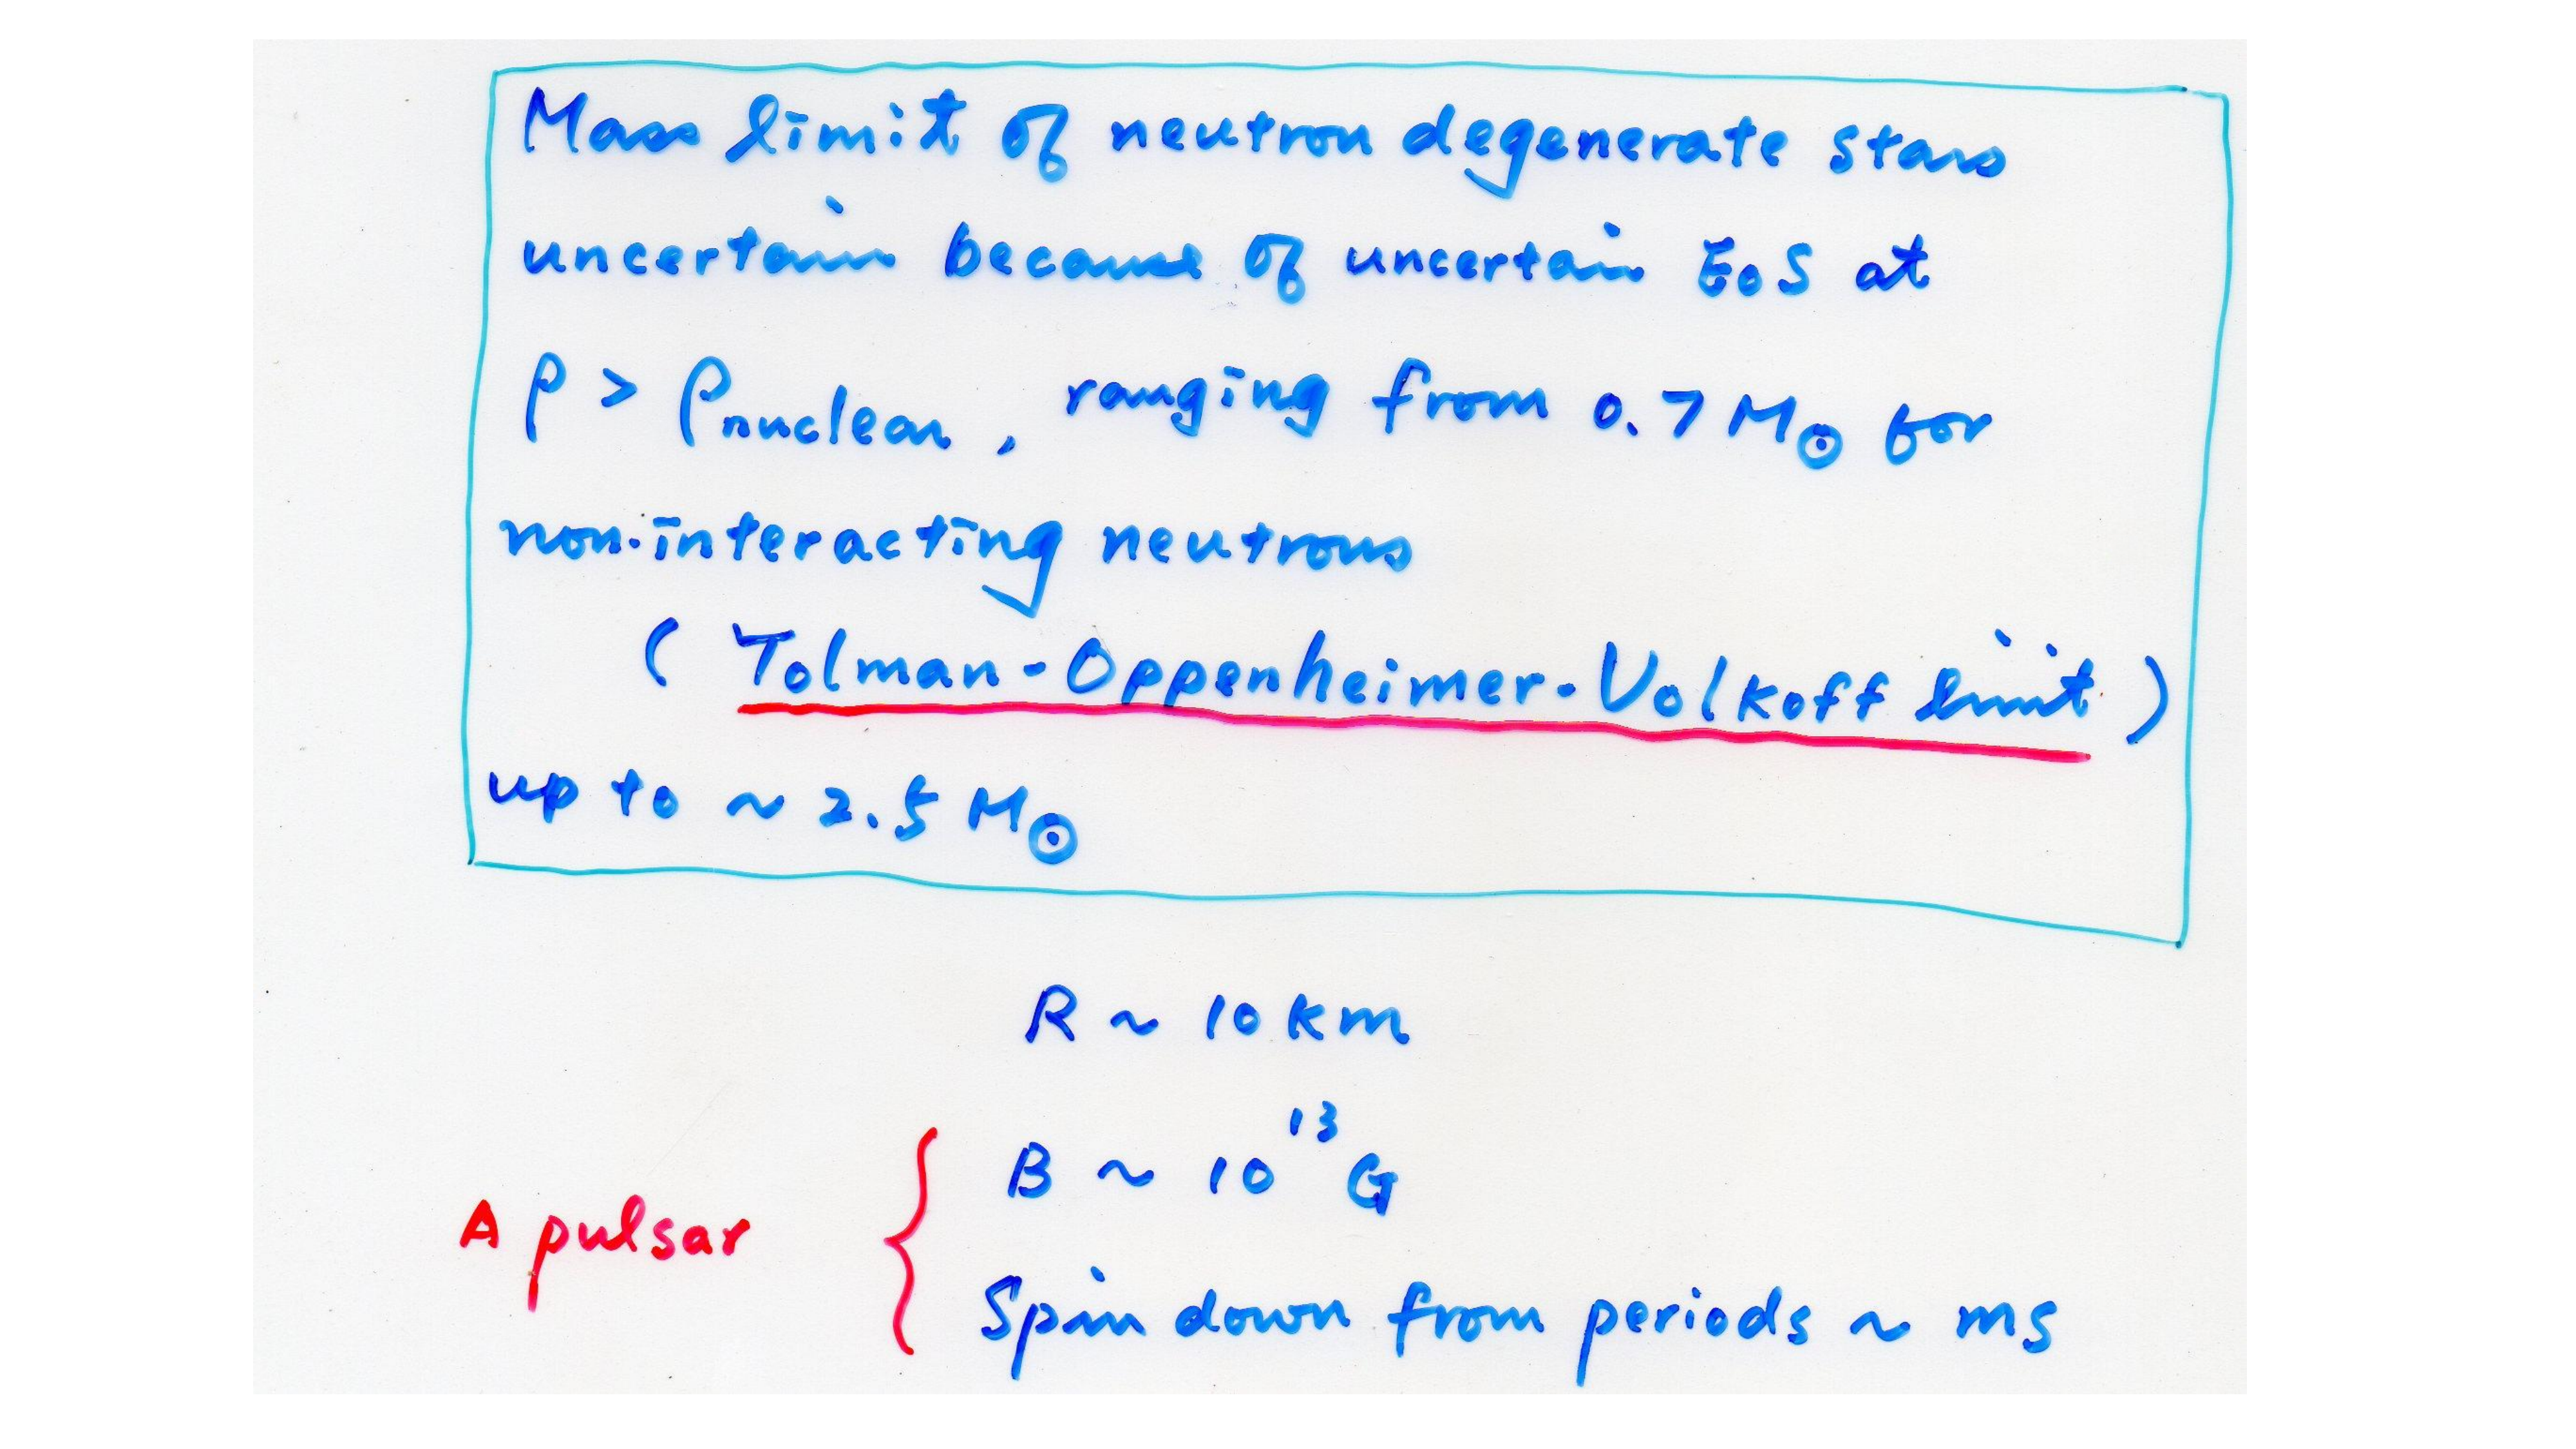 Mass limit of neutron degenerate stars
uncertain because of uncertain EoS at
ρ > ρnuclear, ranging from 0.7 M⊙ for
non-interacting neutrons
( Tolman-Oppenheimer-Volkoff limit )
up to ~ 2.5 M⊙
R ~ 10 km
B ~ 10¹³ G
A pulsar
Spin down from periods ~ ms